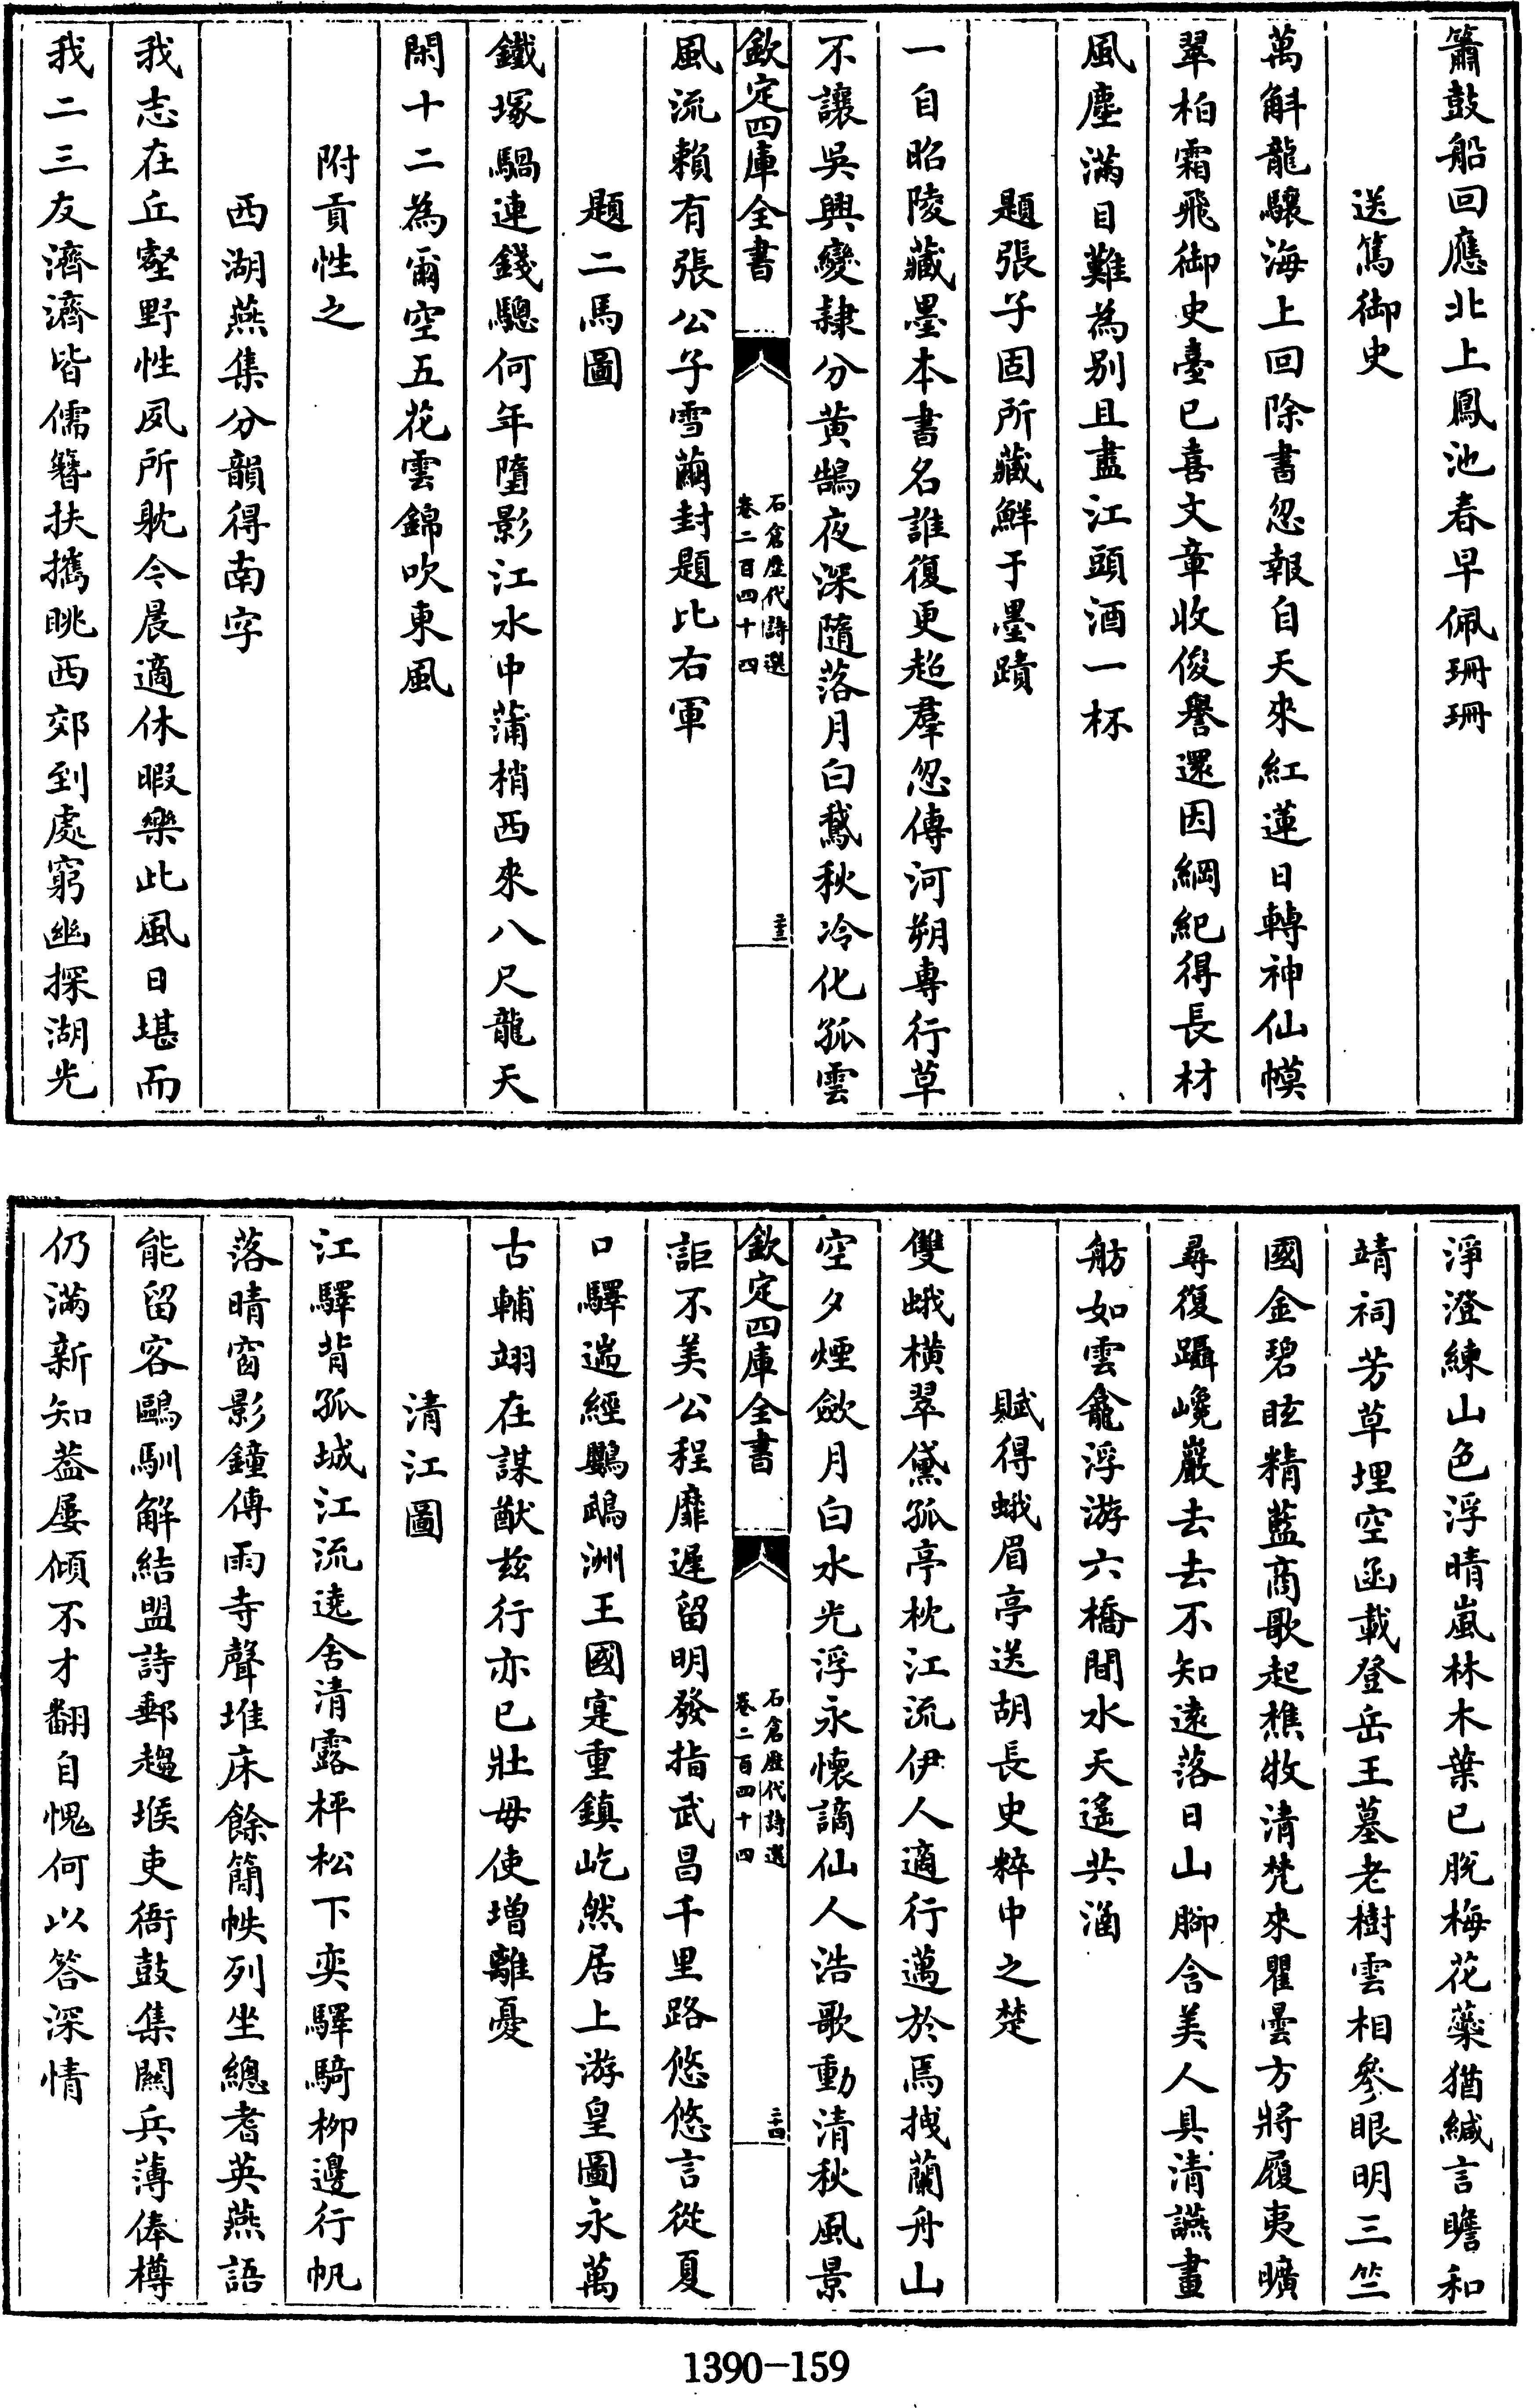 簫鼓船回應北上鳳池春早佩珊珊
送篤御史
萬斛龍驤海上回除書忽報自天來紅蓮日轉神仙幙
翠柏霜飛御史臺已喜文章收俊譽還因綱紀得長材
風塵滿目難為别且盡江頭酒一杯
題張子固所藏鮮于墨蹟
一自昭陵藏墨本書名誰復更超羣忽傳河朔專行草
不讓吳興變隷分黄鵠夜深隨落月白鵞秋冷化孤雲
欽定四庫全書
石倉歷代詩選
卷二百四十四
二十三
風流賴有張公子雪繭封題比右軍
題二馬圖
鐵塚騧連錢驄何年墮影江水中蒲梢西來八尺龍天
閑十二為爾空五花雲錦吹東風
附貢性之
西湖燕集分韻得南字
我志在丘壑野性夙所躭今晨適休暇樂此風日堪而
我二三友濟濟皆儒簪扶攜眺西郊到處窮幽探湖光
淨澄練山色浮晴嵐林木葉已脱梅花蘂猶緘言瞻和
靖祠芳草埋空函載登岳王墓老樹雲相參眼明三竺
國金碧眩精藍商歌起樵牧清梵來瞿曇方將履夷曠
尋復躡巉巖去去不知遠落日山腳含美人具清讌畫
舫如雲龕浮游六橋間水天遙共涵
賦得蛾眉亭送胡長史粹中之楚
雙蛾横翠黛孤亭枕江流伊人適行邁於焉拽蘭舟山
空夕煙斂月白水光浮永懷謫仙人浩歌動清秋風景
欽定四庫全書
石倉歷代詩選
卷二百四十四
二十四
詎不美公程靡遲留明發指武昌千里路悠悠言從夏
口驛遄經鸚鵡洲王國寔重鎮屹然居上游皇圖永萬
古輔翊在謀猷兹行亦已壯毋使增離憂
清江圖
江驛背孤城江流遶舍清露枰松下奕驛騎柳邊行帆
落晴窗影鐘傳雨寺聲堆床餘簡帙列坐總耆英燕語
能留客鷗馴解結盟詩郵趨堠吏衙鼓集闗兵薄俸樽
仍滿新知葢屢傾不才翻自愧何以答深情
1390-159